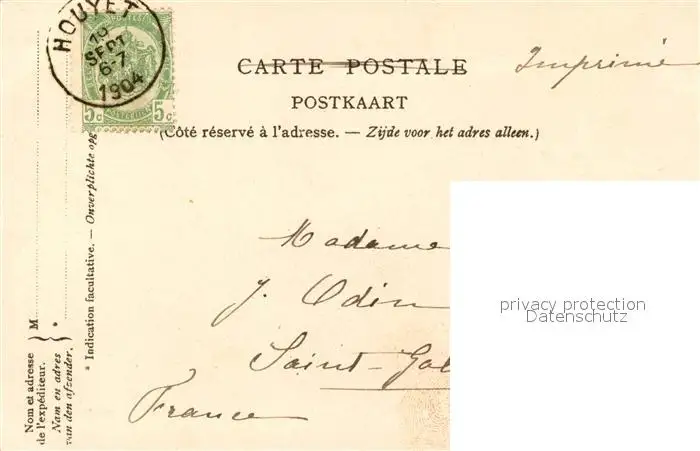 HOUYET
19
SEPT
6-7
1904
5c 5c
CARTE POSTALE
Imprimé
POSTKAART
(Côté réservé à l'adresse. — Zijde voor het adres alleen.)
Madame
J. Odin
Saint-Gal
France
privacy protection
Datenschutz
* Indication facultative. — Onverplichte opg
M
*
Nom et adresse
de l'expéditeur.
Naam en adres
van den afzender.